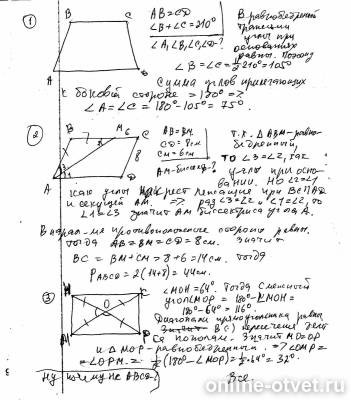 1
B C
A D
AB = CD
∠B + ∠C = 210°
∠A, ∠B, ∠C, ∠D - ?
В равнобедренной
трапеции
углы при
основаниях
равны. Поэтому
∠B = ∠C = ½·210° = 105°
Сумма углов прилегающих
к боковой стороне = 180° =>
∠A = ∠C = 180° - 105° = 75°.
2
B M 6 C
7 8
A
AB = BM
CD = 8 см
CM = 6 см
AM - биссектр. ?
Т.к. △ABM - равно-
бедренный,
то ∠3 = ∠2, как
углы при осно-
вании. Но ∠2 = ∠1
как углы накрест лежащие при BC || AD
и секущей AM. => раз ∠3 = ∠2 и ∠1 = ∠2, то
∠1 = ∠3 значит AM биссектриса угла A.
В парал-ме противоположные стороны равны.
тогда AB = BM = CD = 8 см. значит
BC = BM + CM = 8 + 6 = 14 см. тогда
P ABCD = 2(14 + 8) = 44 см.
3
M O
P
∠MOH = 64°. Тогда смежный
угол ∠MOP = 180° - ∠MOH =
180° - 64° = 116°.
Диагонали прямоугольника равны,
и в т. пересечения делят
ся пополам. Значит MO = OP
и △MOP - равнобедренный. => ∠OMP =
= ∠OPM = ½(180° - ∠MOP) = ½·64° = 32°
Ну почему не ABCD?
Все
online-otvet.ru